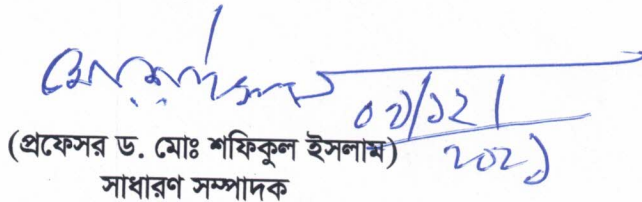 ০১/১২/
২০২১
(প্রফেসর ড. মোঃ শফিকুল ইসলাম)
সাধারণ সম্পাদক